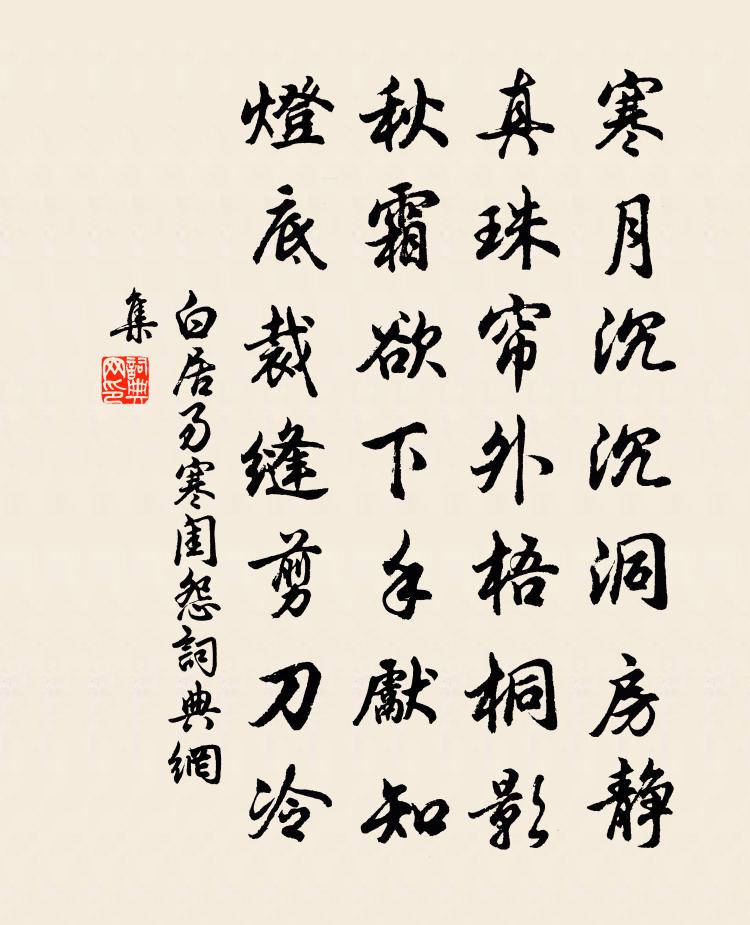 寒月沉沉洞房静
真珠帘外梧桐影
秋霜欲下手獻知
燈底裁縫剪刀冷
白居易寒閨怨詞典網
集
詞典网印